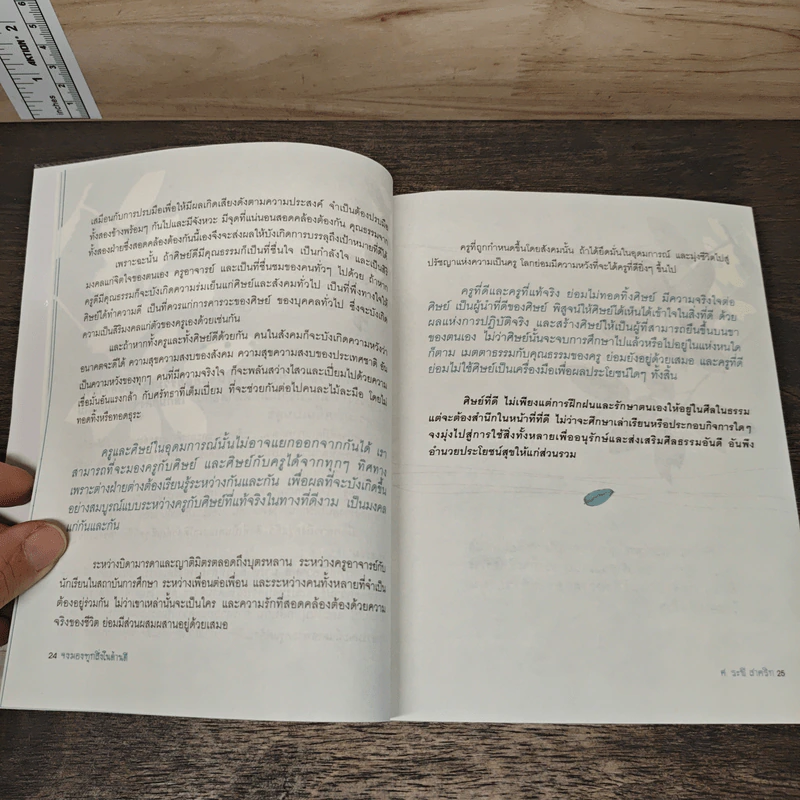 เสมือนกับการปรบมือเพื่อให้มีผลเกิดเสียงดังตามความประสงค์ จำเป็นต้องปรบมือ
ทั้งสองข้างพร้อมๆ กันไปและมีจังหวะ มีจุดที่แน่นอนสอดคล้องต้องกัน คุณธรรมจาก
ทั้งสองฝ่ายซึ่งสอดคล้องต้องกันนี้เองจึงจะส่งผลให้บังเกิดการบรรลุถึงเป้าหมายที่ดีได้
เพราะฉะนั้น ถ้าศิษย์ดีมีคุณธรรมก็เป็นที่ชื่นใจ เป็นกำลังใจ และเป็นสิริ
มงคลแก่จิตใจของตนเอง ครูอาจารย์ และเป็นที่ชื่นชมของคนทั่วๆ ไปด้วย ถ้าหาก
ครูดีมีคุณธรรมก็จะบังเกิดความร่มเย็นแก่ศิษย์และสังคมทั่วไป เป็นที่พึ่งทางใจให้
ศิษย์ได้ทำความดี เป็นที่ควรแก่การคารวะของศิษย์ ของบุคคลทั่วไป ซึ่งจะบังเกิด
ความเป็นสิริมงคลแก่ตัวของครูเองด้วยเช่นกัน
และถ้าหากทั้งครูและทั้งศิษย์ดีด้วยกัน คนในสังคมก็จะบังเกิดความหวังว่า
อนาคตจะดีได้ ความสุขความสงบของสังคม ความสุขความสงบของประเทศชาติ อัน
เป็นความหวังของทุกๆ คนที่มีความจริงใจ ก็จะพลันสว่างไสวและเปี่ยมไปด้วยความ
เชื่อมั่นอันแรงกล้า กับศรัทธาที่เต็มเปี่ยม ที่จะช่วยกันต่อไปคนละไม้ละมือ โดยไม่
ทอดทิ้งหรือทอดธุระ
ครูและศิษย์ในอุดมการณ์นั้นไม่อาจแยกออกจากกันได้ เรา
สามารถที่จะมองครูกับศิษย์ และศิษย์กับครูได้จากทุกๆ ทิศทาง
เพราะต่างฝ่ายต่างต้องเรียนรู้ระหว่างกันและกัน เพื่อผลที่จะบังเกิดขึ้น
อย่างสมบูรณ์แบบระหว่างครูกับศิษย์ที่แท้จริงในทางที่ดีงาม เป็นมงคล
แก่กันและกัน
ระหว่างบิดามารดาและญาติมิตรตลอดถึงบุตรหลาน ระหว่างครูอาจารย์กับ
นักเรียนในสถาบันการศึกษา ระหว่างเพื่อนต่อเพื่อน และระหว่างคนทั้งหลายที่จำเป็น
ต้องอยู่ร่วมกัน ไม่ว่าเขาเหล่านั้นจะเป็นใคร และความรักที่สอดคล้องต้องด้วยความ
จริงของชีวิต ย่อมมีส่วนผสมผสานอยู่ด้วยเสมอ
24 จงมองทุกสิ่งในด้านดี
ครูที่ถูกกำหนดขึ้นโดยสังคมนั้น ถ้าได้ยึดมั่นในอุดมการณ์ และมุ่งชีวิตไปสู่
ปรัชญาแห่งความเป็นครู โลกย่อมมีความหวังที่จะได้ครูที่ดียิ่งๆ ขึ้นไป
ครูที่ดีและครูที่แท้จริง ย่อมไม่ทอดทิ้งศิษย์ มีความจริงใจต่อ
ศิษย์ เป็นผู้นำที่ดีของศิษย์ พิสูจน์ให้ศิษย์ได้เห็นได้เข้าใจในสิ่งที่ดี ด้วย
ผลแห่งการปฏิบัติจริง และสร้างศิษย์ให้เป็นผู้ที่สามารถยืนขึ้นบนขา
ของตนเอง ไม่ว่าศิษย์นั้นจะจบการศึกษาไปแล้วหรือไปอยู่ในแห่งหนใด
ก็ตาม เมตตาธรรมกับคุณธรรมของครู ย่อมยังอยู่ด้วยเสมอ และครูที่ดี
ย่อมไม่ใช้ศิษย์เป็นเครื่องมือเพื่อผลประโยชน์ใดๆ ทั้งสิ้น
ศิษย์ที่ดี ไม่เพียงแต่การฝึกฝนและรักษาตนเองให้อยู่ในศีลในธรรม
แต่จะต้องสำนึกในหน้าที่ที่ดี ไม่ว่าจะศึกษาเล่าเรียนหรือประกอบกิจการใดๆ
จงมุ่งไปสู่การใช้สิ่งทั้งหลายเพื่ออนุรักษ์และส่งเสริมศีลธรรมอันดี อันพึง
อำนวยประโยชน์สุขให้แก่ส่วนรวม
25
ACTION
inches
1
2
1
2
3
4
5
6